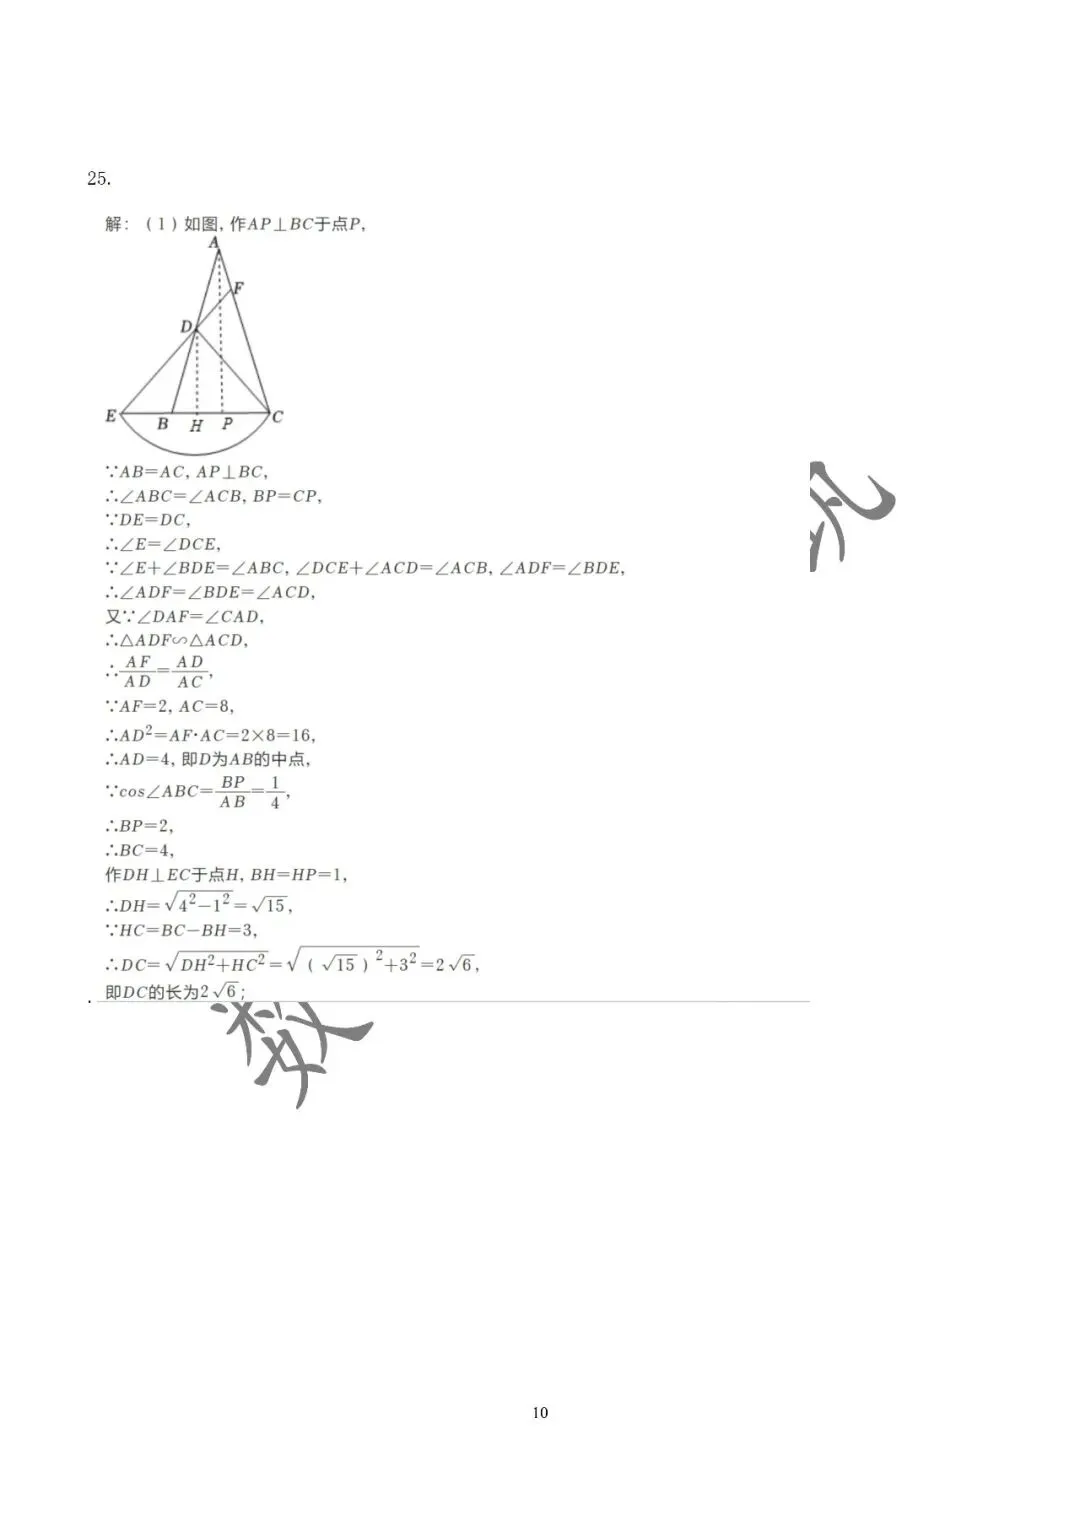 25.
解：（1）如图, 作AP⊥BC于点P,
A
F
D
E
B
H
P
C
∵AB=AC, AP⊥BC,
∴∠ABC=∠ACB, BP=CP,
∵DE=DC,
∴∠E=∠DCE,
∵∠E+∠BDE=∠ABC, ∠DCE+∠ACD=∠ACB, ∠ADF=∠BDE,
∴∠ADF=∠BDE=∠ACD,
又∵∠DAF=∠CAD,
∴△ADF∽△ACD,
∴AF/AD=AD/AC,
∵AF=2, AC=8,
∴AD²=AF·AC=2×8=16,
∴AD=4, 即D为AB的中点,
∵cos∠ABC=BP/AB=1/4,
∴BP=2,
∴BC=4,
作DH⊥EC于点H, BH=HP=1,
∴DH=√(4²−1²)=√15,
∵HC=BC−BH=3,
∴DC=√(DH²+HC²)=√((√15)²+3²)=2√6,
即DC的长为2√6;
.
数
10